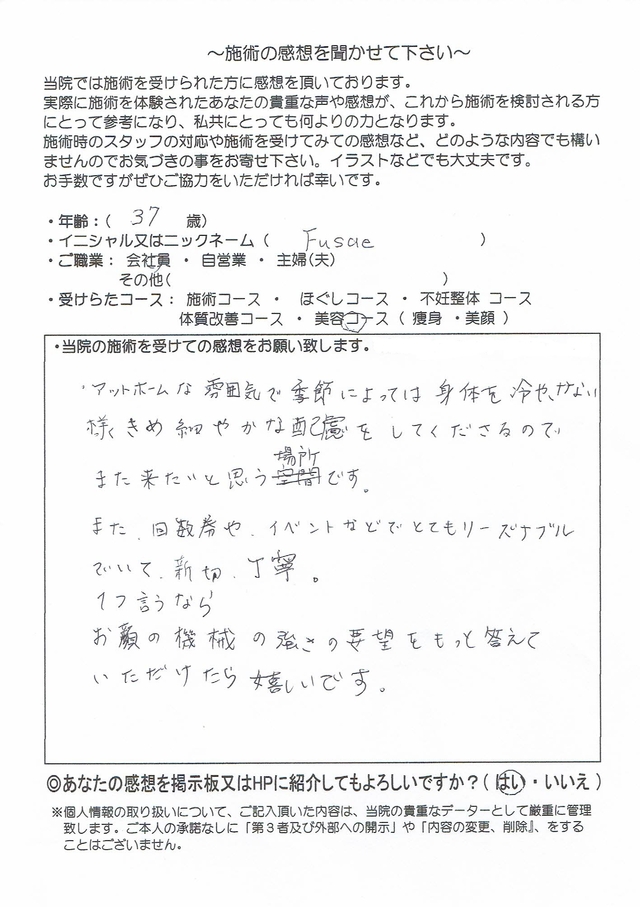 ～施術の感想を聞かせて下さい～
当院では施術を受けられた方に感想を頂いております。
実際に施術を体験されたあなたの貴重な声や感想が、これから施術を検討される方
にとって参考になり、私共にとっても何よりの力となります。
施術時のスタッフの対応や施術を受けてみての感想など、どのような内容でも構い
ませんのでお気づきの事をお寄せ下さい。イラストなどでも大丈夫です。
お手数ですがぜひご協力をいただければ幸いです。
・年齢：( 37 歳)
・イニシャル又はニックネーム ( Fusae )
・ご職業： 会社員 ・ 自営業 ・ 主婦(夫)
その他( )
・受けらたコース： 施術コース ・ ほぐしコース ・ 不妊整体 コース
体質改善コース ・ 美容コース ( 痩身 ・美顔 )
・当院の施術を受けての感想をお願い致します。
・アットホームな雰囲気で季節によっては身体を冷やさない
様きめ細やかな配慮をしてくださるので
場所
また来たいと思う空間です。
また、回数券や、イベントなどでとてもリーズナブル
でいて、新切、丁寧。
1つ言うなら
お顔の機械の強さの要望をもっと答えて
いただけたら嬉しいです。
◎あなたの感想を掲示板又はHPに紹介してもよろしいですか？( はい・いいえ )
※個人情報の取り扱いについて、ご記入頂いた内容は、当院の貴重なデーターとして厳重に管理
致します。ご本人の承諾なしに「第３者及び外部への開示」や「内容の変更、削除』、をする
ことはございません。